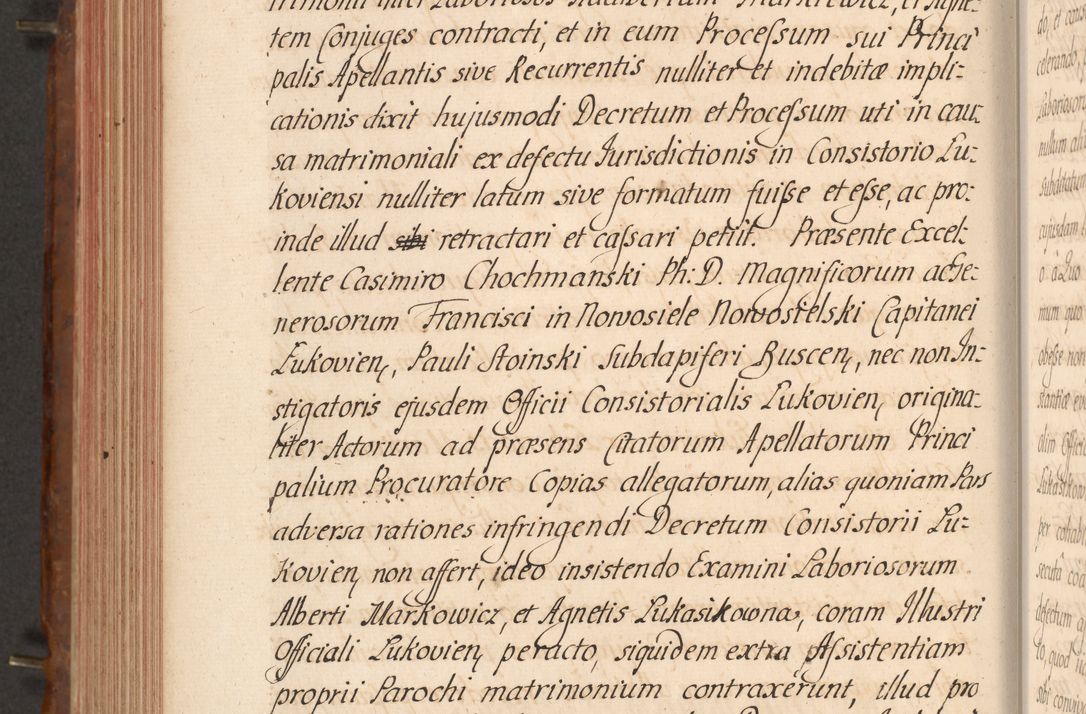 tem Conjuges contracti, et in eum Processum sui Princi
palis Apellantis sive Recurrentis nulliter et indebitæ impli:
cationis dixit hujusmodi Decretum et Processum uti in cau:
sa matrimoniali ex defectu Jurisdictionis in Consistorio Lu:
koviensi nulliter latum sive formatum fuisse et esse, ac pro:
inde illud sibi retractari et cassari petiit. Præsente Excel:
lente Casimiro Chochmanski Ph: D. Magnificorum ac Ge:
nerosorum Francisci in Nowosiele Nowosielski Capitanei
Lukovien, Pauli Stoinski Subdapiferi Buscen, nec non In:
stigatoris ejusdem Officii Consistorialis Lukovien, origina:
liter Actorum ad præsens Citatorum Apellatorum Princi
palium Procuratore Copias allegatorum, alias quoniam Pars
adversa rationes infringendi Decretum Consistorii Lu:
kovien, non affert, ideo insistendo Examini Laboriosorum
Alberti Markowicz, et Agnetis Lukasikowna, coram Illustri
Officiali Lukovien, peracto, siquidem extra Assistentiam
proprii Parochi matrimonium contraxerunt, illud pro